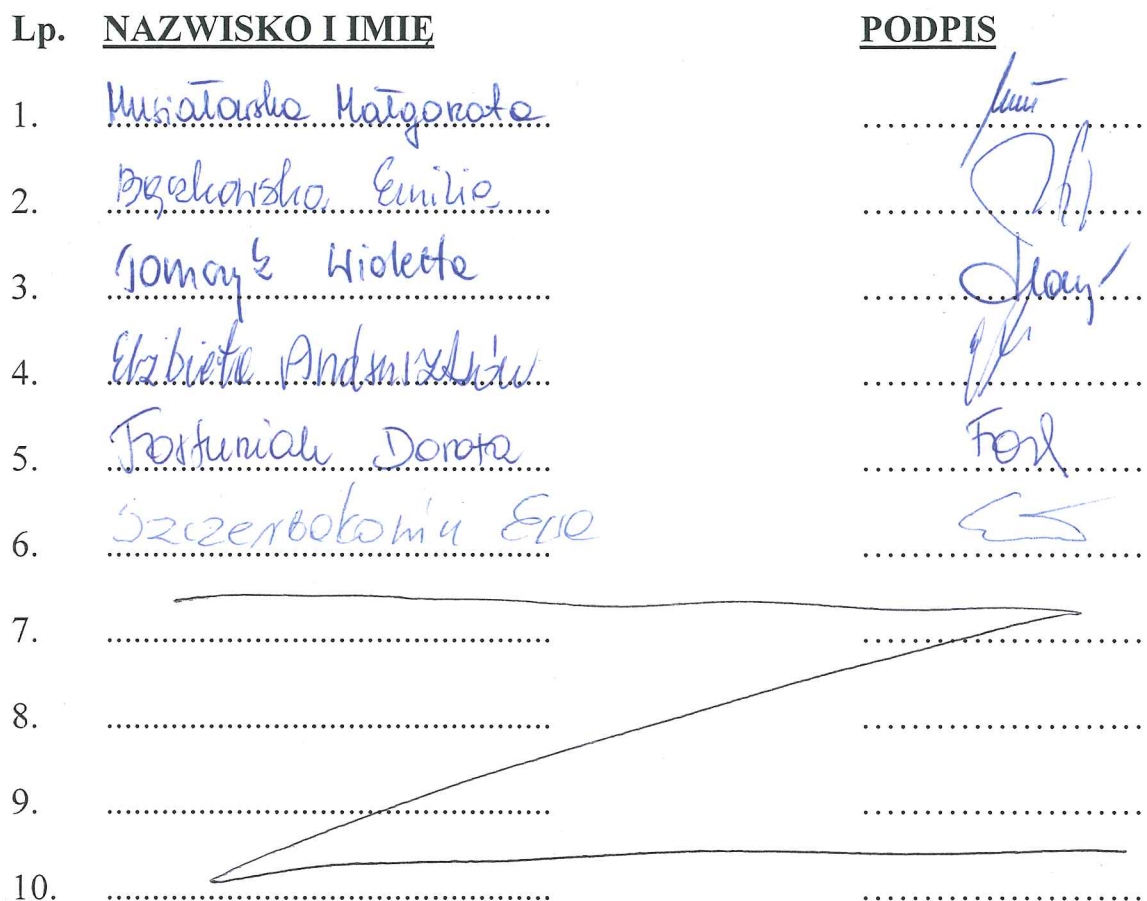 Lp. NAZWISKO I IMIĘ PODPIS
1. Musiałowska Małgorzata
2. Bączkowska Emilia
3. Tomczyk Wioletta
4. Elżbieta Andruszków
5. Fortuniak Dorota
6. Ewa
7.
8.
9.
10.